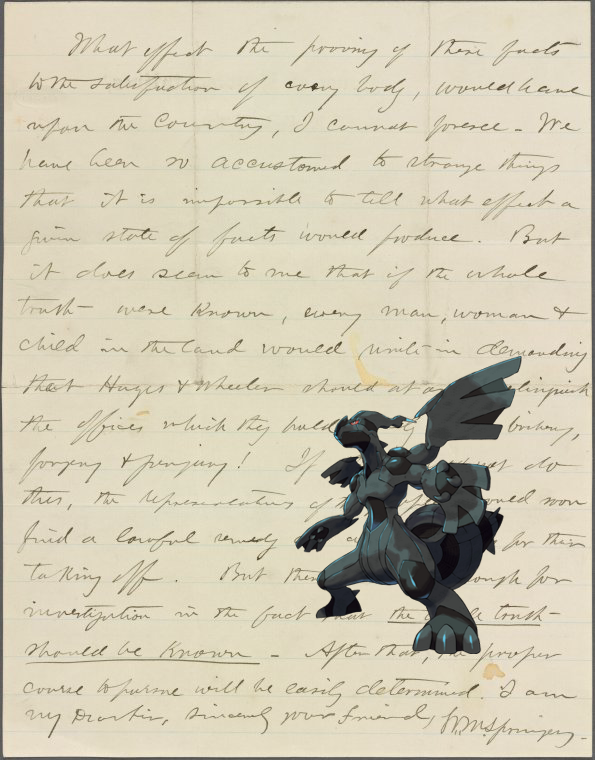 What effect the proving of these facts
to the satisfaction of every body, would have
upon the Country, I cannot foresee - We
have been so accustomed to strange things
that it is impossible to tell what effect a
given state of facts would produce. But
it does seem to me that if the whole
truth were known, every man, woman &
child in the land would unite in demanding
that Hayes & Wheeler should at
the offices which they hold bribery,
forgery & perjury! If not do
this, the representatives of would soon
find a lawful remedy for their
taking off. But for
investigation in the fact that the truth
should be known - After that, the proper
course to pursue will be easily determined. I am
my Dear Sir, sincerely your friend, Wm Springer.